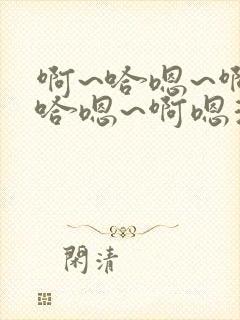 啊~哈嗯~啊
哈嗯~啊嗯
閑清